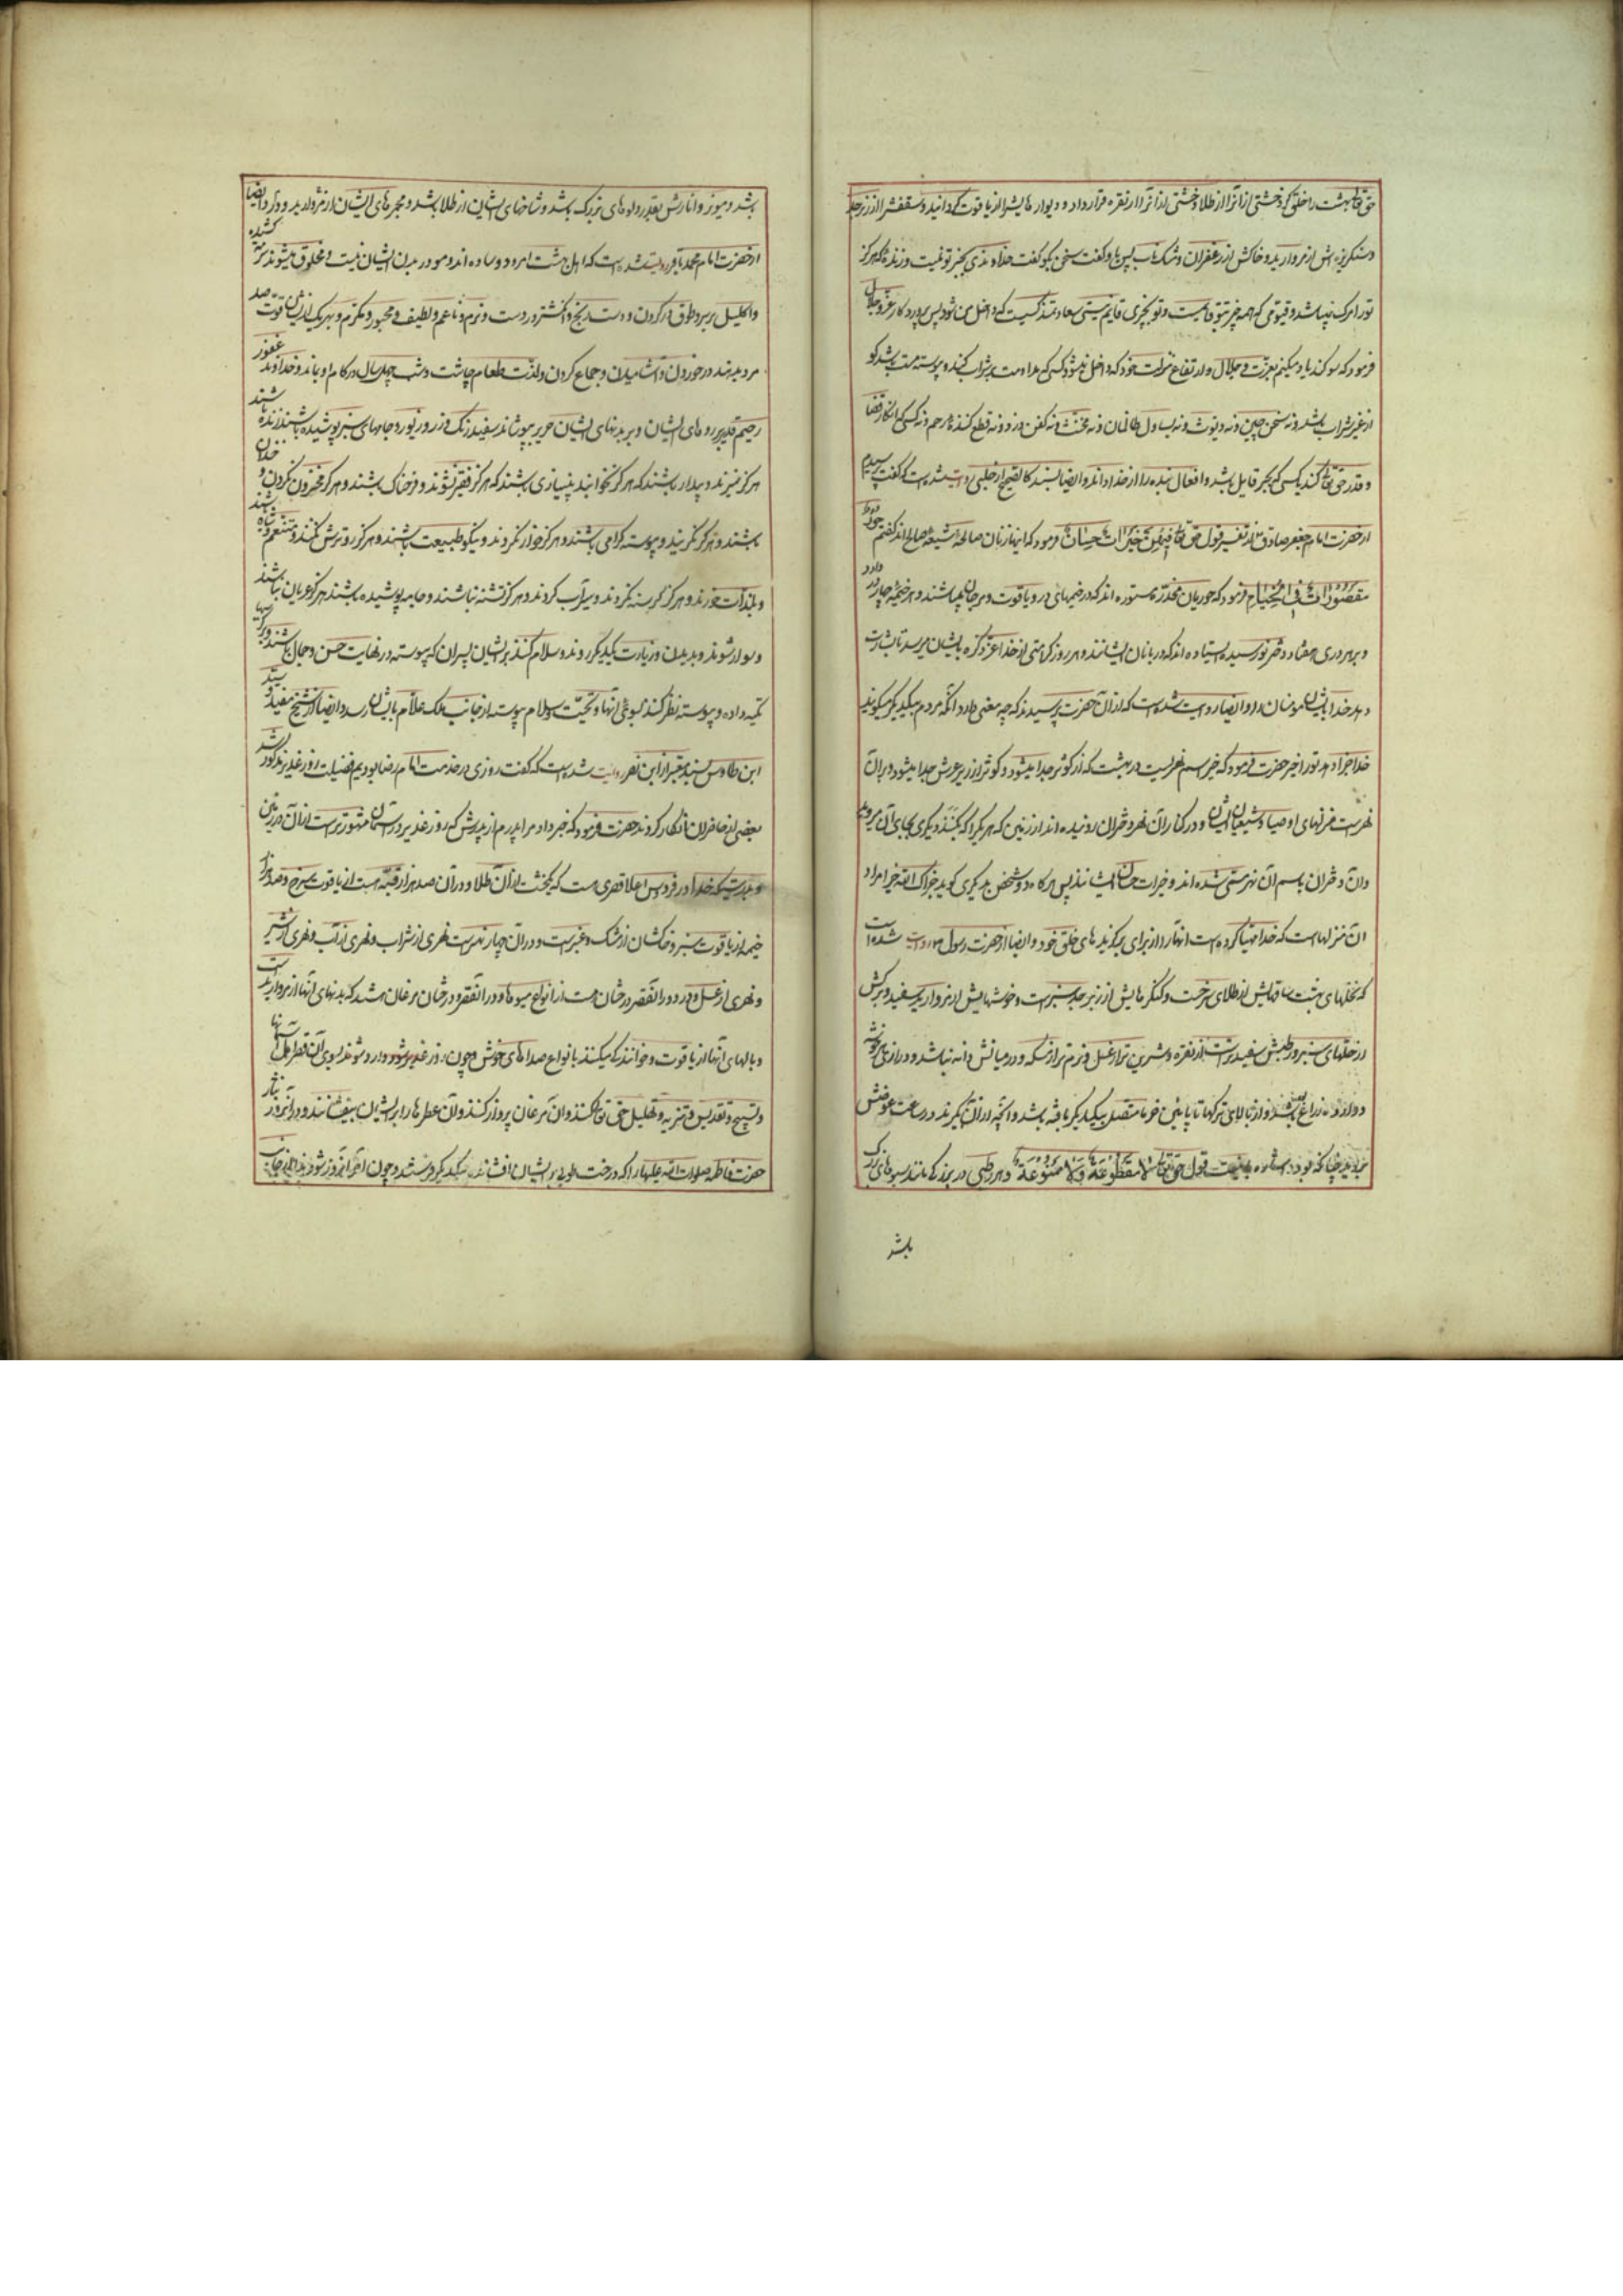 حق تعالی بهشت را خلق کرد خشتی از آنرا از طلا و خشتی از آنرا از نقره قرار داد و دیوارهایش را از یاقوت گردانید و سقفش را از زبرجد
و سنگریزه اش از مروارید و خاکش از زعفران و مشک ناب پس باو گفت سخن بگو گفت خداوندی بجز تو نیست و زنده که هرگز
تو را مرگ نمیباشد و قیومی که همه چیز بتو قایمست و تو بچیزی قایم نیستی سعادتمند کسیست که داخل من شود پس پروردگار عز و جل
فرمود که سوگند یاد میکنم بعزت و جلال و ارتفاع منزلت خود که داخل تو نشود کسی که مداومت بر شراب کند و پیوسته مست باشد که
از غیر شراب باشد و نه سخن چین و نه دیوث و نه یساول ظالمان و نه مخنث و نه کفن دزد و نه قطع کننده رحم و نه کسی که انکار قضا
و قدر حق تعالی کند یا کسی که بجبر قایل باشد و افعال بنده را از خدا داند و ایضا بسند کالصحیح از حلبی روایت شده است که گفت پرسیدم
از حضرت امام جعفر صادق از تفسیر قول حق تعالی فیهن خیرات حسان فرمود که اینها زنان صالحه شیعه صالح اند گفتم حور
مقصورات فی الخیام فرمود که حوریان مخدره مستوره اند که در خیمهای در و یاقوت و مرجان میباشند و هر خیمه چهار در دارد
و بر هر دری هفتاد دختر نورسیده ایستاده اند که دربانان ایشانند و هر روز کرامتی از خدا عز ذکره بایشان میرسد تا بشارت
دهد خدا بایشان مومنان را و ایضا روایت شده است که از آن حضرت پرسیدند که چه معنی دارد آنکه مردم بیکدیگر میگویند
خدا جزا دهد تو را خیر حضرت فرمود که خیر اسم نهریست در بهشت که از کوثر جدا میشود و کوثر از زیر عرش جدا میشود و بر آن
نهرست منزلهای اوصیا و شیعیان ایشان و در کنار آن نهر دختران روئیده اند از زمین که هر یک را که بکنند دیگری بجای آن میروید
و آن دختران باسم آن نهر مسمی شده اند و خیرات حسان ایشانند پس هرگاه دو شخص بدیگری گوید جزاک الله خیرا مراد
آن منزلهاست که خدا مهیا کرده است آنها را از برای برگزیده های خلق خود و ایضا از حضرت رسول ص روایت شده است
که نخلهای بهشت ساقهایش از طلای سرخست و کنگرهایش از زبرجد سبزست و خوشهایش از مروارید سفید و برگش
از حلهای سبز و رطبش سفیدترست از نقره و شیرین تر از عسل و نرم تر از مسکه و در میانش دانه نباشد و درازی هر خوشه
دوازده ذراع باشد و از بالای ترکها تا پائین خرما متصل بیکدیگر بافته باشد و آنچه از آن بگیرند در ساعت عوضش
بروید چنانکه بود اشاره باینست قول حق تعالی لا مقطوعة ولا ممنوعة و هر رطبی در بزرگی مانند سبوهای بزرگ
باشد
باشد و میوز و انارش بقدر دلوهای بزرگ باشد و شاخهای ایشان از طلا باشد و مجمرهای ایشان از مروارید و در و ایضا
از حضرت امام محمد باقر روایت شده است که اهل بهشت امرد و ساده اند و مو در بدن ایشان نیست و مخلوق میشوند سرمه کشیده
و اکلیل بر سر و طوق در گردن و دست رنج و انگشتر در دست و نرم و ناعم و لطیف و محبور و مکرم و بهر یک از ایشان قوت صد
مرد بدهند در خوردن و آشامیدن و جماع کردن و لذت طعام چاشت و شب چهل سال در کام او بماند و خداوند غفور
رحیم قدیر بر روهای ایشان و بر بدنهای ایشان حریر بپوشاند سفید رنگ و زرد زیور و جامهای سبز پوشیده باشند زنده باشند
هرگز نمیرند و بیدار باشند که هرگز نخوابند بی نیازی باشند که هرگز فقیر نشوند و فرحناک باشند و هرگز محزون نگردند و خندان
باشند و هرگز نگریند و پیوسته گرامی باشند و هرگز خوار نگردند و نیکو طبیعت باشند و هرگز رو ترش نکنند و متنعم و شاد باشند
و بلذات خورند و هرگز گرسنه نگردند و سیراب گردند و هرگز تشنه نباشند و جامه پوشیده باشند هرگز عریان نباشند
و سوار شوند و بدیدن و زیارت یکدیگر روند و سلام کنند بر ایشان پسران که پیوسته در نهایت حسن و جمال باشند
تکیه داده و پیوسته نظر کنند بسوی آنها و تحیت و سلام پیوسته از جانب ملک علام بایشان رسد و ایضا از شیخ مفید و سید
ابن طاوس بسند معتبر از ابن نصر روایت شده است که گفت روزی در خدمت امام رضا بودیم فضیلت روز غدیر مذکور شد
بعضی از حاضران انکار کردند حضرت فرمود که خبر داد مرا پدرم از پدرش که روز غدیر در آسمان مشهورترست از آن در زمین
و بدرستیکه خدا در فردوس اعلا قصری هست که یکخشت از آن طلا و در آن صد هزار قبه هست از یاقوت سرخ و صد هزار
خیمه از یاقوت سبز و خاکشان از مشک و عنبرست و در آن چهار نهرست نهری از شراب و نهری از آب و نهری از شیر
و نهری از عسل و در دور آن قصر درختان هست از انواع میوها و در آن قصر و درختان مرغان هستند که بدنهای آنها از مرواریدست
و بالهای آنها از یاقوت و خوانندگی میکنند بانواع صداهای خوش و چون روز غدیر شود وارد شوند بسوی آن قصر اهل آسمانها
و تسبیح و تقدیس و تنزیه و تهلیل حق تعالی کنند و آن مرغان پرواز کنند و آن عطرها را بر ایشان بیفشانند و در آنروز نثار
حضرت فاطمه صلوات الله علیها را که درخت طوبی بر ایشان افشانده بیکدیگر فرستند و چون آخر آنروز شود ندا از جانب